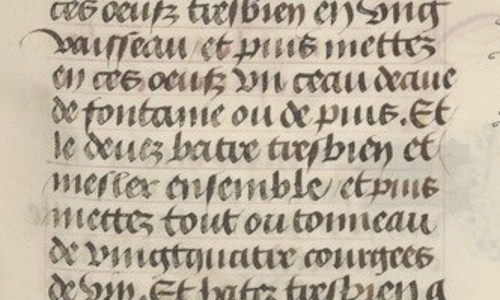 ces oeufz tresbien en vng
vaisseau / et puis mettez
en ces oeufz vn ceau deaue
de fontaine ou de puis. Et
le deuez batre tresbien et
mesler ensemble / et puis
mettez tout ou tonneau
de vingtquatre courgees
de vin. Et batez tresbien a